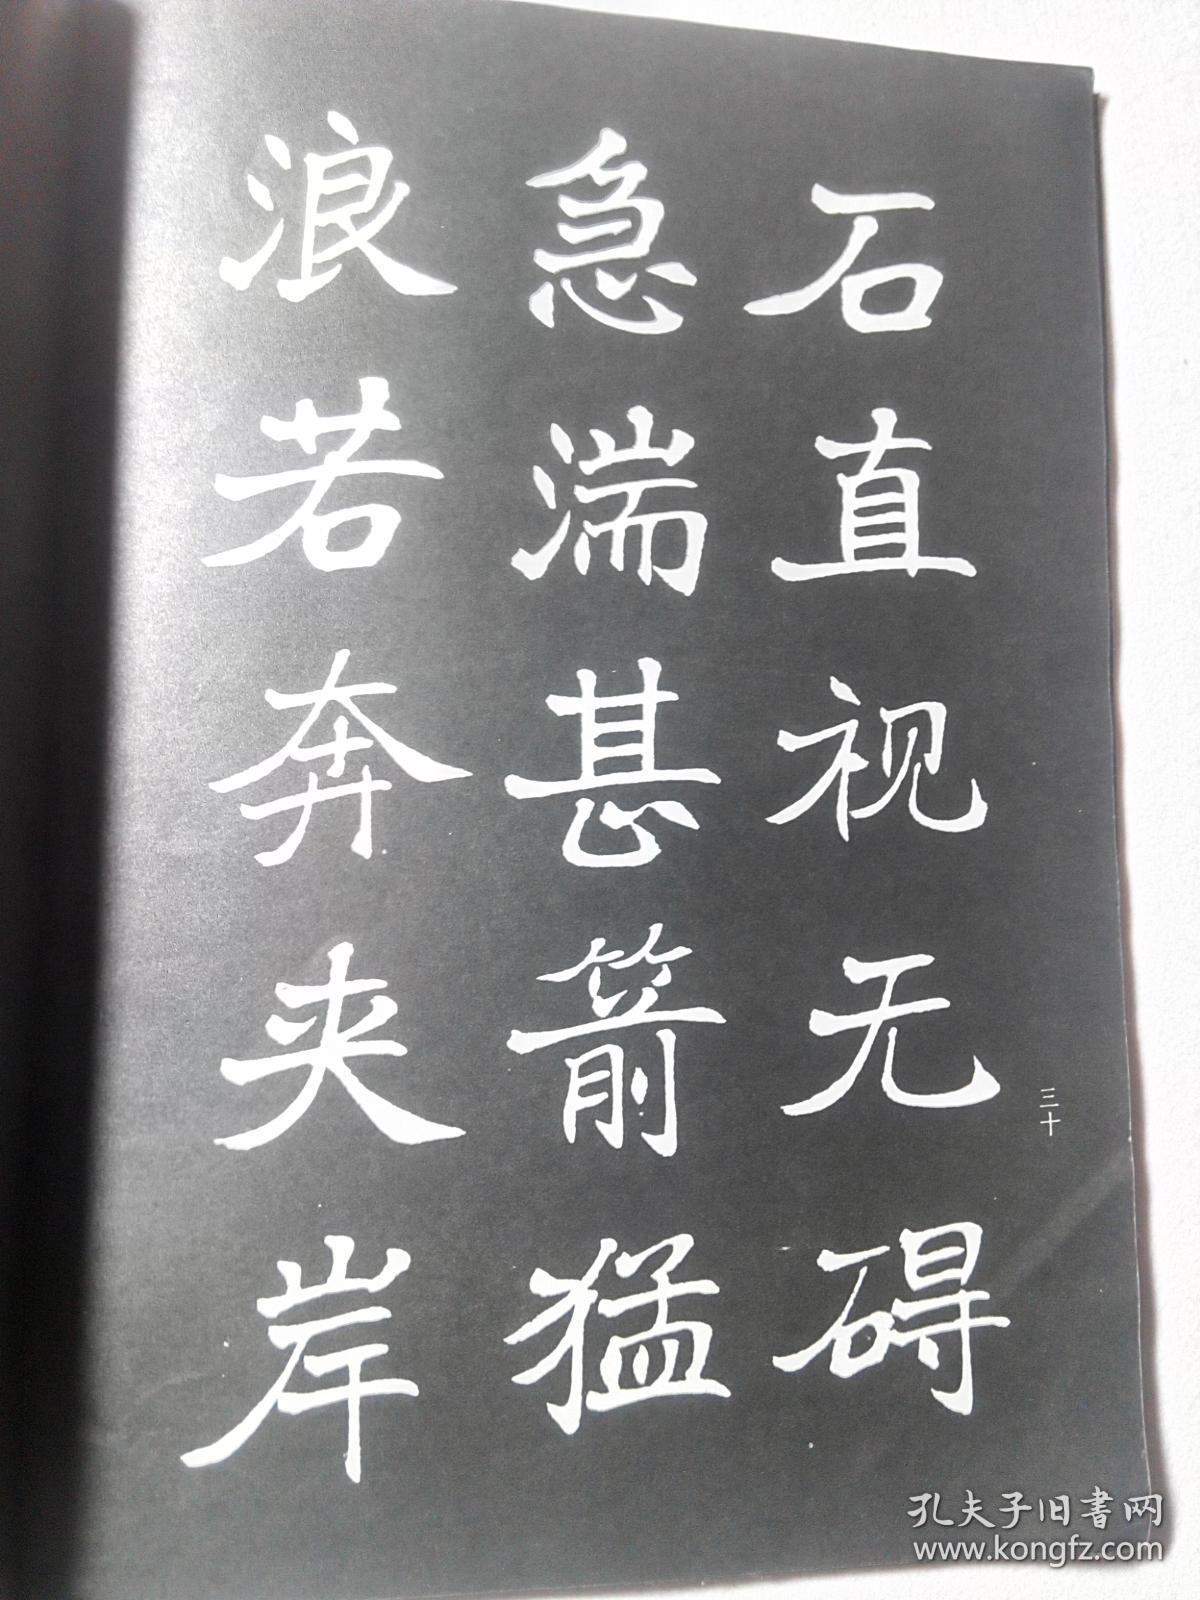 石直视无碍
急湍甚箭猛
浪若奔夹岸
三十
孔夫子旧書网
www.kongfz.com